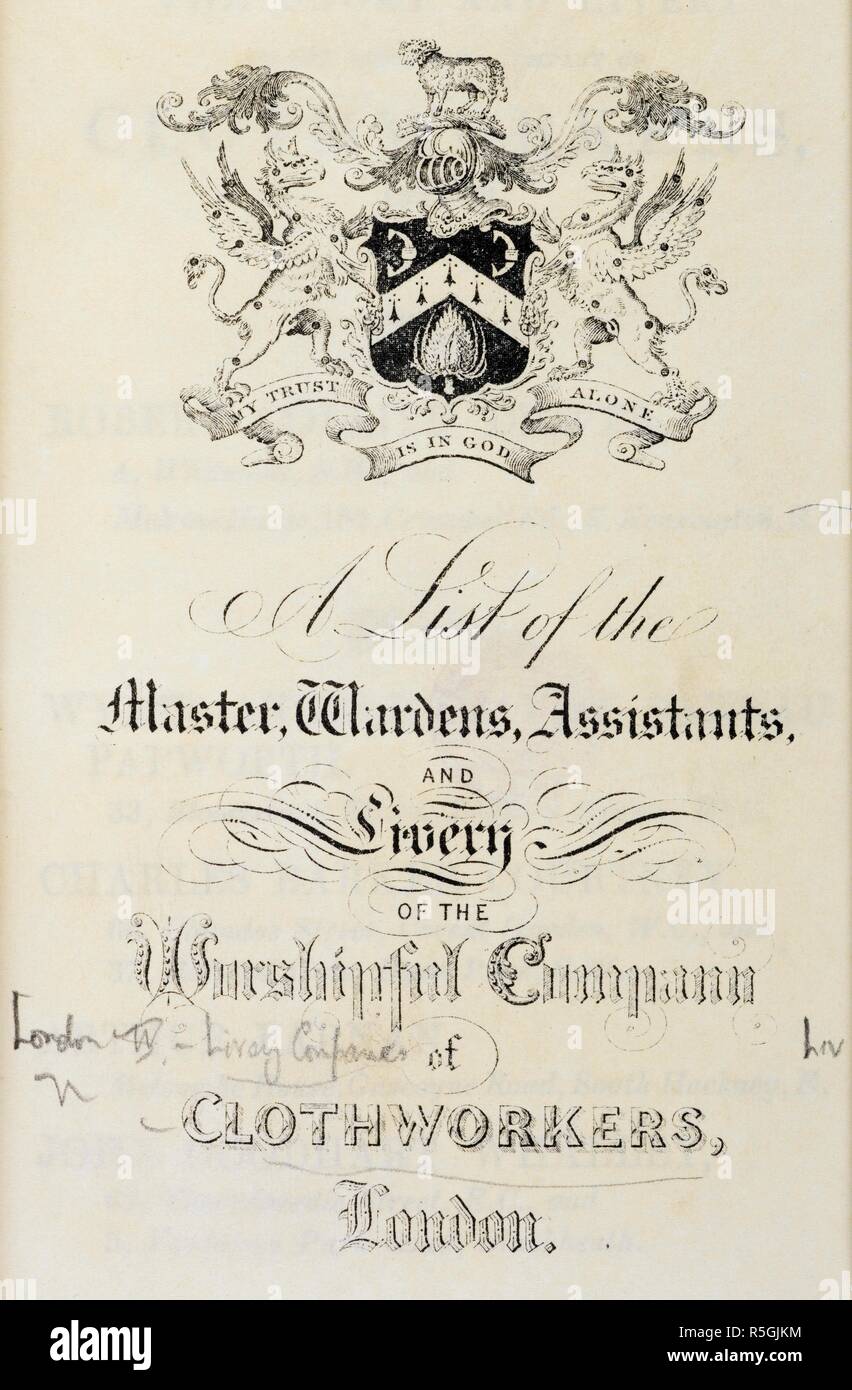 MY TRUST
IS IN GOD
ALONE
A List of the
Master, Wardens, Assistants,
AND
Livery
OF THE
Worshipful Company
London - Livery Companies
Liv
of
CLOTHWORKERS,
London.
alamy
Image ID: R5GJKM
www.alamy.com